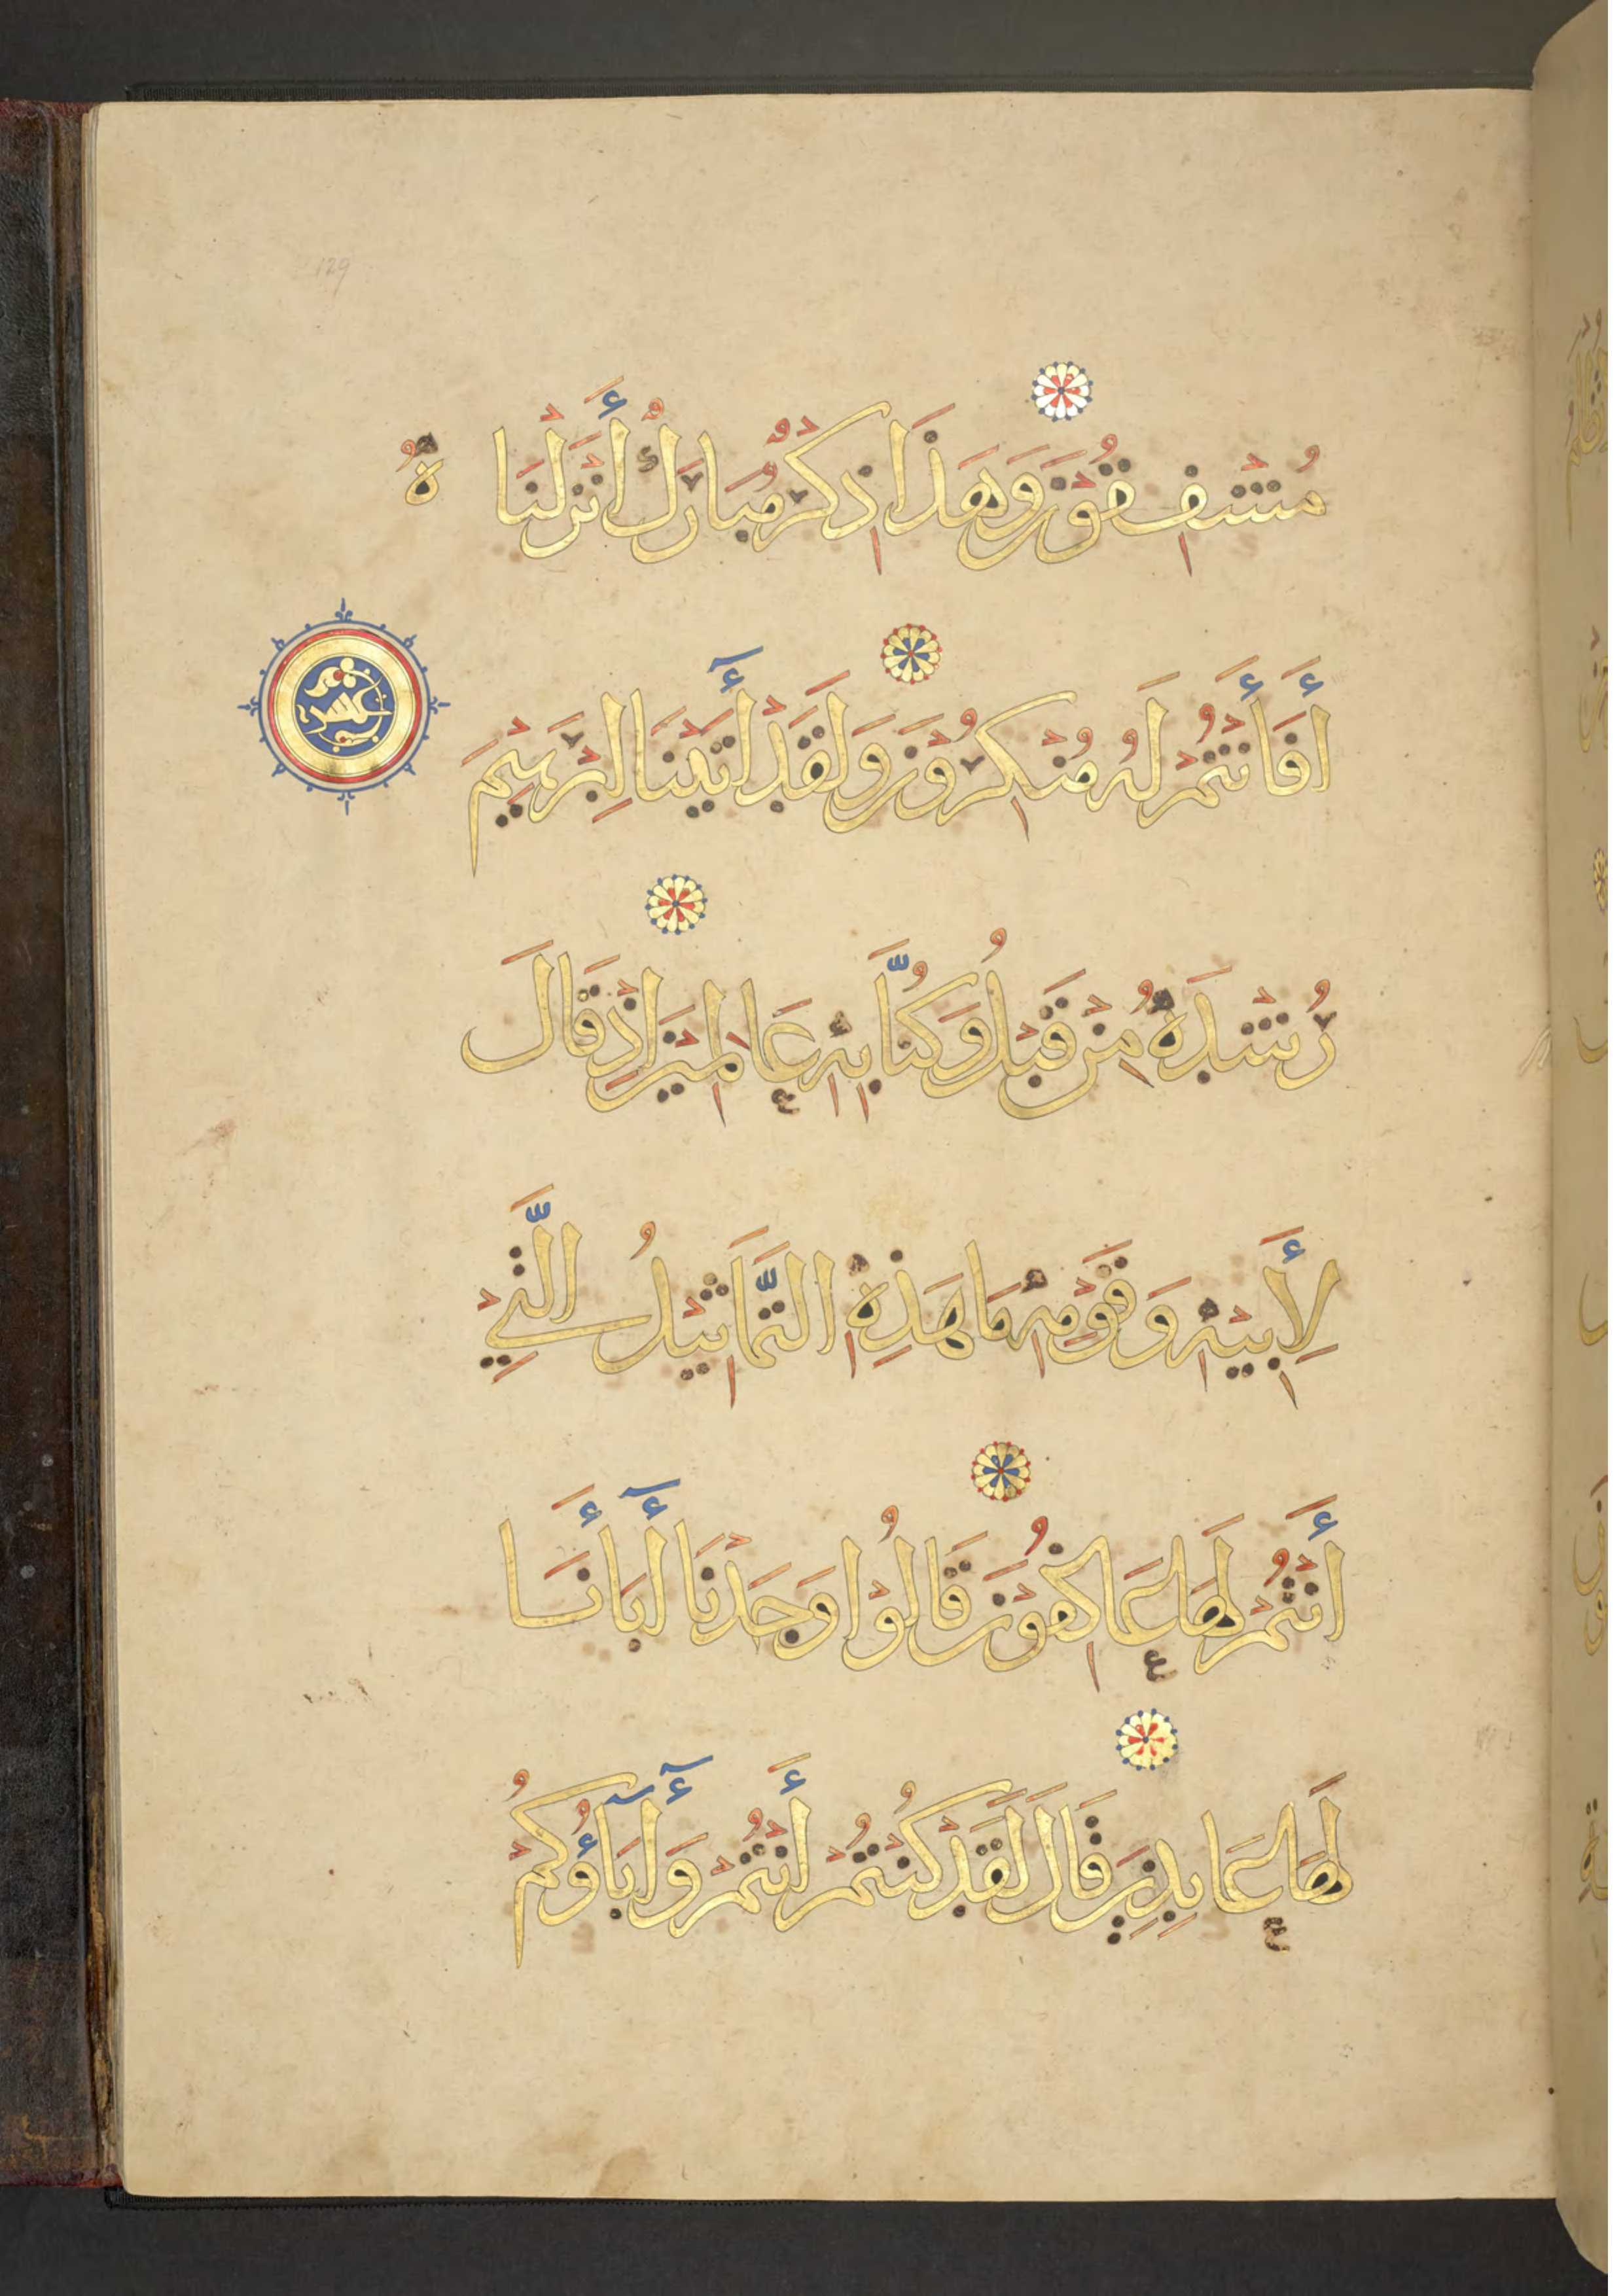 129
مُشْفِقُوْنَ وَهَذَا ذِكْرٌ مُبَارَكٌ أَنْزَلْنَا هُ
أَفَأَنْتُمْ لَهُ مُنْكِرُوْنَ وَلَقَدْ أٓتَيْنَا إِبْرَهِيْمَ
رُشْدَهُ مِنْ قَبْلُ وَكُنَّا بِهِ عَالِمِيْنَ إِذْ قَالَ
لِأَبِيْهِ وَقَوْمِهِ مَا هَذِهِ التَّمَاثِيْلُ الَّتِيْ
أَنْتُمْ لَهَا عَاكِفُوْنَ قَالُوْا وَجَدْنَا أٓبَأَنَا
لَهَا عَابِدِيْنَ قَالَ لَقَدْ كُنْتُمْ أَنْتُمْ وَأٓبَآؤُكُمْ